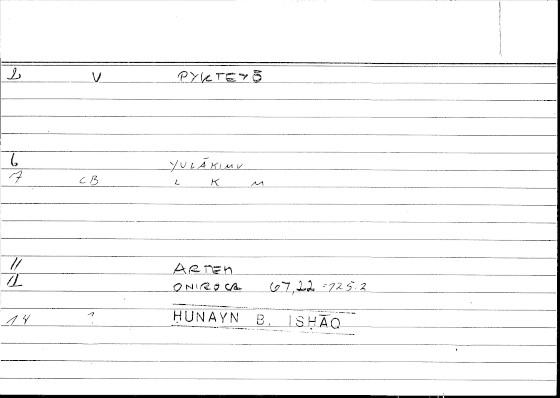 2 V PYKTEYŌ
6 YULĀKIMU
7 CB L K M
11 ARTEM
12 ONIROCR 67,22 = 125.2
14 ? ḤUNAYN B. ISḤĀQ